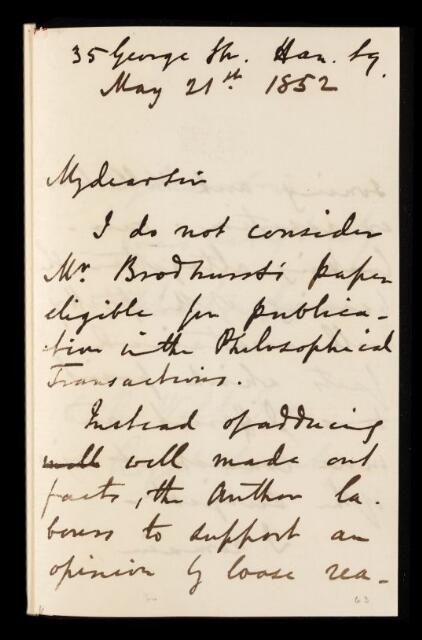 35 George St. Han. Sq.
May 21st 1852
My dear Sir
I do not consider
Mr. Brodhurst's paper
eligible for publica-
-tion in the Philosophical
Transactions.
Instead of adducing
well made out
facts, the Author la-
bours to support an
opinion by loose rea-
63